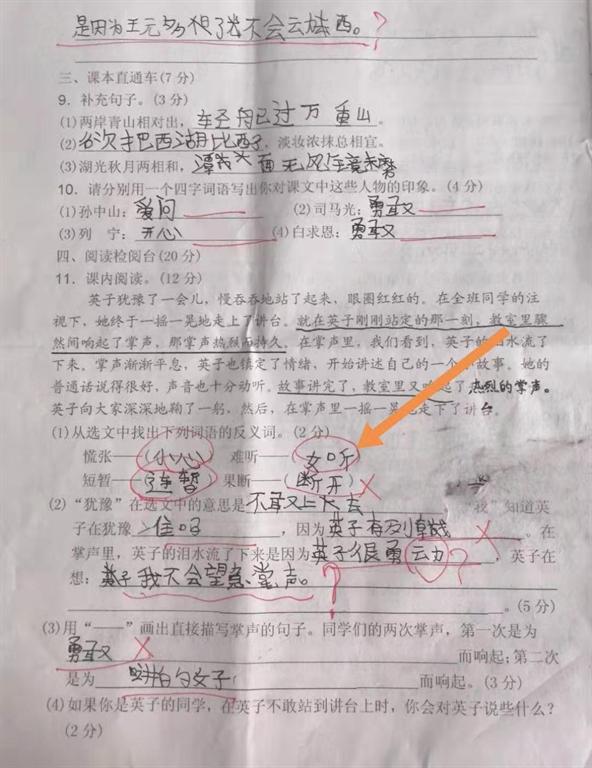 是因为王元 不会云 西。?
三、课本直通车(7 分)
9. 补充句子。(3 分)
(1)两岸青山相对出,车至舟已过万重山。
(2)欲把西湖比西子,淡妆浓抹总相宜。
(3)湖光秋月两相和,潭 面无风
10. 请分别用一个四字词语写出你对课文中这些人物的印象。(4 分)
(1)孙中山:爱问 (2)司马光:勇敢
(3)列 宁:开心 (4)白求恩:勇敢
四、阅读检阅台(20 分)
11. 课内阅读。(12 分)
英子犹豫了一会儿,慢吞吞地站了起来,眼圈红红的。在全班同学的注
视下,她终于一摇一晃地走上了讲台。就在英子刚刚站定的那一刻,教室里骤
然间响起了掌声,那掌声热烈而持久。在掌声里,我们看到,英子的泪水流了
下来。掌声渐渐平息,英子也镇定了情绪,开始讲述自己的一个小故事。她的
普通话说得很好,声音也十分动听。故事讲完了,教室里又响起了热烈的掌声。
英子向大家深深地鞠了一躬,然后,在掌声里一摇一晃地走下了讲台。
(1)从选文中找出下列词语的反义词。(2 分)
慌张——(小心) 难听——(女听)
短暂——(连暂) 果断——(断开)
(2)“犹豫”在选文中的意思是不敢上 去 “我”知道英
子在犹豫 住吗,因为英子有 。在
掌声里,英子的泪水流了下来是因为英子很勇云力?,英子在
想:英子我不会望 掌声。?
。(5 分)
(3)用“——”画出直接描写掌声的句子。同学们的两次掌声,第一次是为
勇敢 而响起;第二次
是为 而响起。(3 分)
(4)如果你是英子的同学,在英子不敢站到讲台上时,你会对英子说些什么?
(2 分)